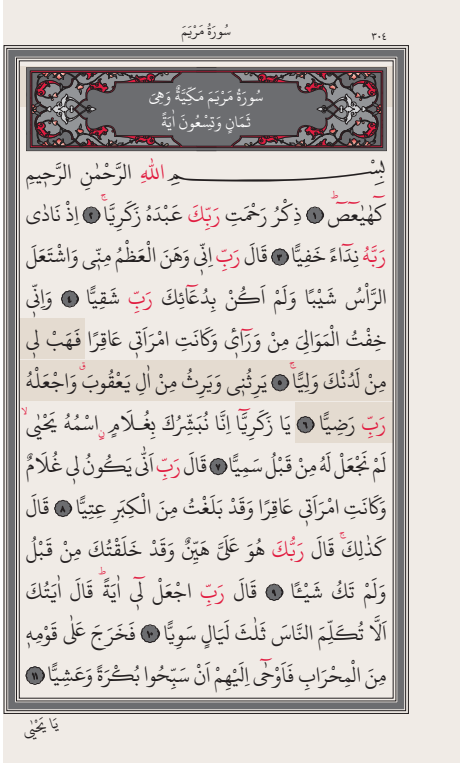 سُورَةُ مَرْيَمَ
٣٠٤
سُورَةُ مَرْيَمَ مَكِّيَّةٌ وَهِىَ
ثَمَانٍ وَتِسْعُونَ اٰيَةً
بِسْمِ اللّٰهِ الرَّحْمٰنِ الرَّحٖيمِ
كٓهٰيٰعٓصٓ ١ ذِكْرُ رَحْمَتِ رَبِّكَ عَبْدَهُ زَكَرِيَّاۚ ٢ اِذْ نَادٰى
رَبَّهُ نِدَٓاءً خَفِيًّا ٣ قَالَ رَبِّ اِنّٖى وَهَنَ الْعَظْمُ مِنّٖى وَاشْتَعَلَ
الرَّاْسُ شَيْبًا وَلَمْ اَكُنْ بِدُعَٓائِكَ رَبِّ شَقِيًّا ٤ وَاِنّٖى
خِفْتُ الْمَوَالِىَ مِنْ وَرَٓائٖ وَكَانَتِ امْرَاَتٖى عَاقِرًا فَهَبْ لٖى
مِنْ لَدُنْكَ وَلِيًّاۙ ٥ يَرِثُنٖى وَيَرِثُ مِنْ اٰلِ يَعْقُوبَۗ وَاجْعَلْهُ
رَبِّ رَضِيًّا ٦ يَا زَكَرِيَّٓا اِنَّا نُبَشِّرُكَ بِغُلَامٍ اسْمُهُ يَحْيٰىۙ
لَمْ نَجْعَلْ لَهُ مِنْ قَبْلُ سَمِيًّا ٧ قَالَ رَبِّ اَنّٰى يَكُونُ لٖى غُلَامٌ
وَكَانَتِ امْرَاَتٖى عَاقِرًا وَقَدْ بَلَغْتُ مِنَ الْكِبَرِ عِتِيًّا ٨ قَالَ
كَذٰلِكَۚ قَالَ رَبُّكَ هُوَ عَلَىَّ هَيِّنٌ وَقَدْ خَلَقْتُكَ مِنْ قَبْلُ
وَلَمْ تَكُ شَيْـًٔا ٩ قَالَ رَبِّ اجْعَلْ لٖٓى اٰيَةًۜ قَالَ اٰيَتُكَ
اَلَّا تُكَلِّمَ النَّاسَ ثَلٰثَ لَيَالٍ سَوِيًّا ١٠ فَخَرَجَ عَلٰى قَوْمِهٖ
مِنَ الْمِحْرَابِ فَاَوْحٰٓى اِلَيْهِمْ اَنْ سَبِّحُوا بُكْرَةً وَعَشِيًّا ١١
يَا يَحْيٰى